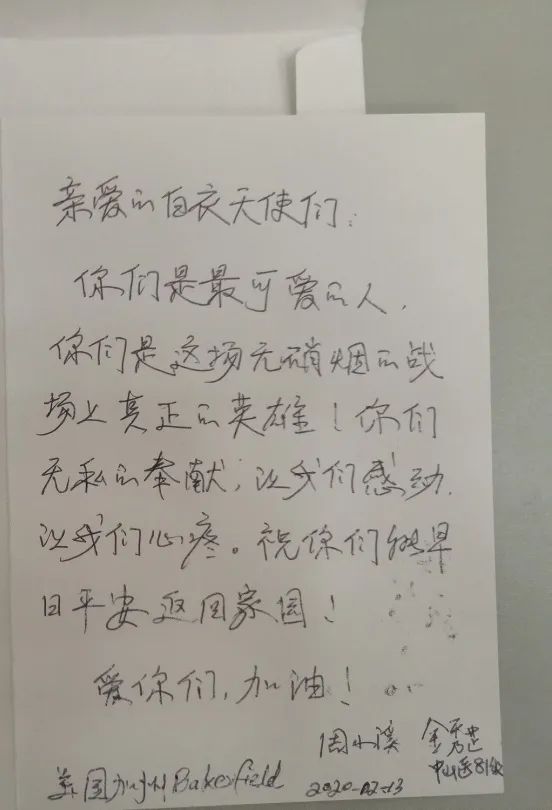 亲爱的白衣天使们：
你们是最可爱的人，
你们是这场无硝烟的战
场上真正的英雄！你们
无私的奉献，让我们感动，
让我们心疼。祝你们能早
日平安返回家园！
爱你们，加油！
周小溪 金
美国加州Bakersfield 2020-02-13 中山医81级